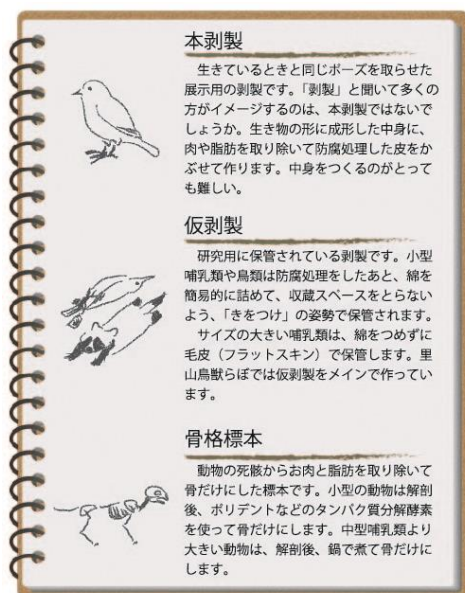 本剥製
生きているときと同じポーズを取らせた
展示用の剥製です。「剥製」と聞いて多くの
方がイメージするのは、本剥製ではないで
しょうか。生き物の形に成形した中身に、
肉や脂肪を取り除いて防腐処理した皮をか
ぶせて作ります。中身をつくるのがとって
も難しい。
仮剥製
研究用に保管されている剥製です。小型
哺乳類や鳥類は防腐処理をしたあと、綿を
簡易的に詰めて、収蔵スペースをとらない
よう、「きをつけ」の姿勢で保管されます。
サイズの大きい哺乳類は、綿をつめずに
毛皮（フラットスキン）で保管します。里
山鳥獣らぼでは仮剥製をメインで作ってい
ます。
骨格標本
動物の死骸からお肉と脂肪を取り除いて
骨だけにした標本です。小型の動物は解剖
後、ポリデントなどのタンパク質分解酵素
を使って骨だけにします。中型哺乳類より
大きい動物は、解剖後、鍋で煮て骨だけに
します。